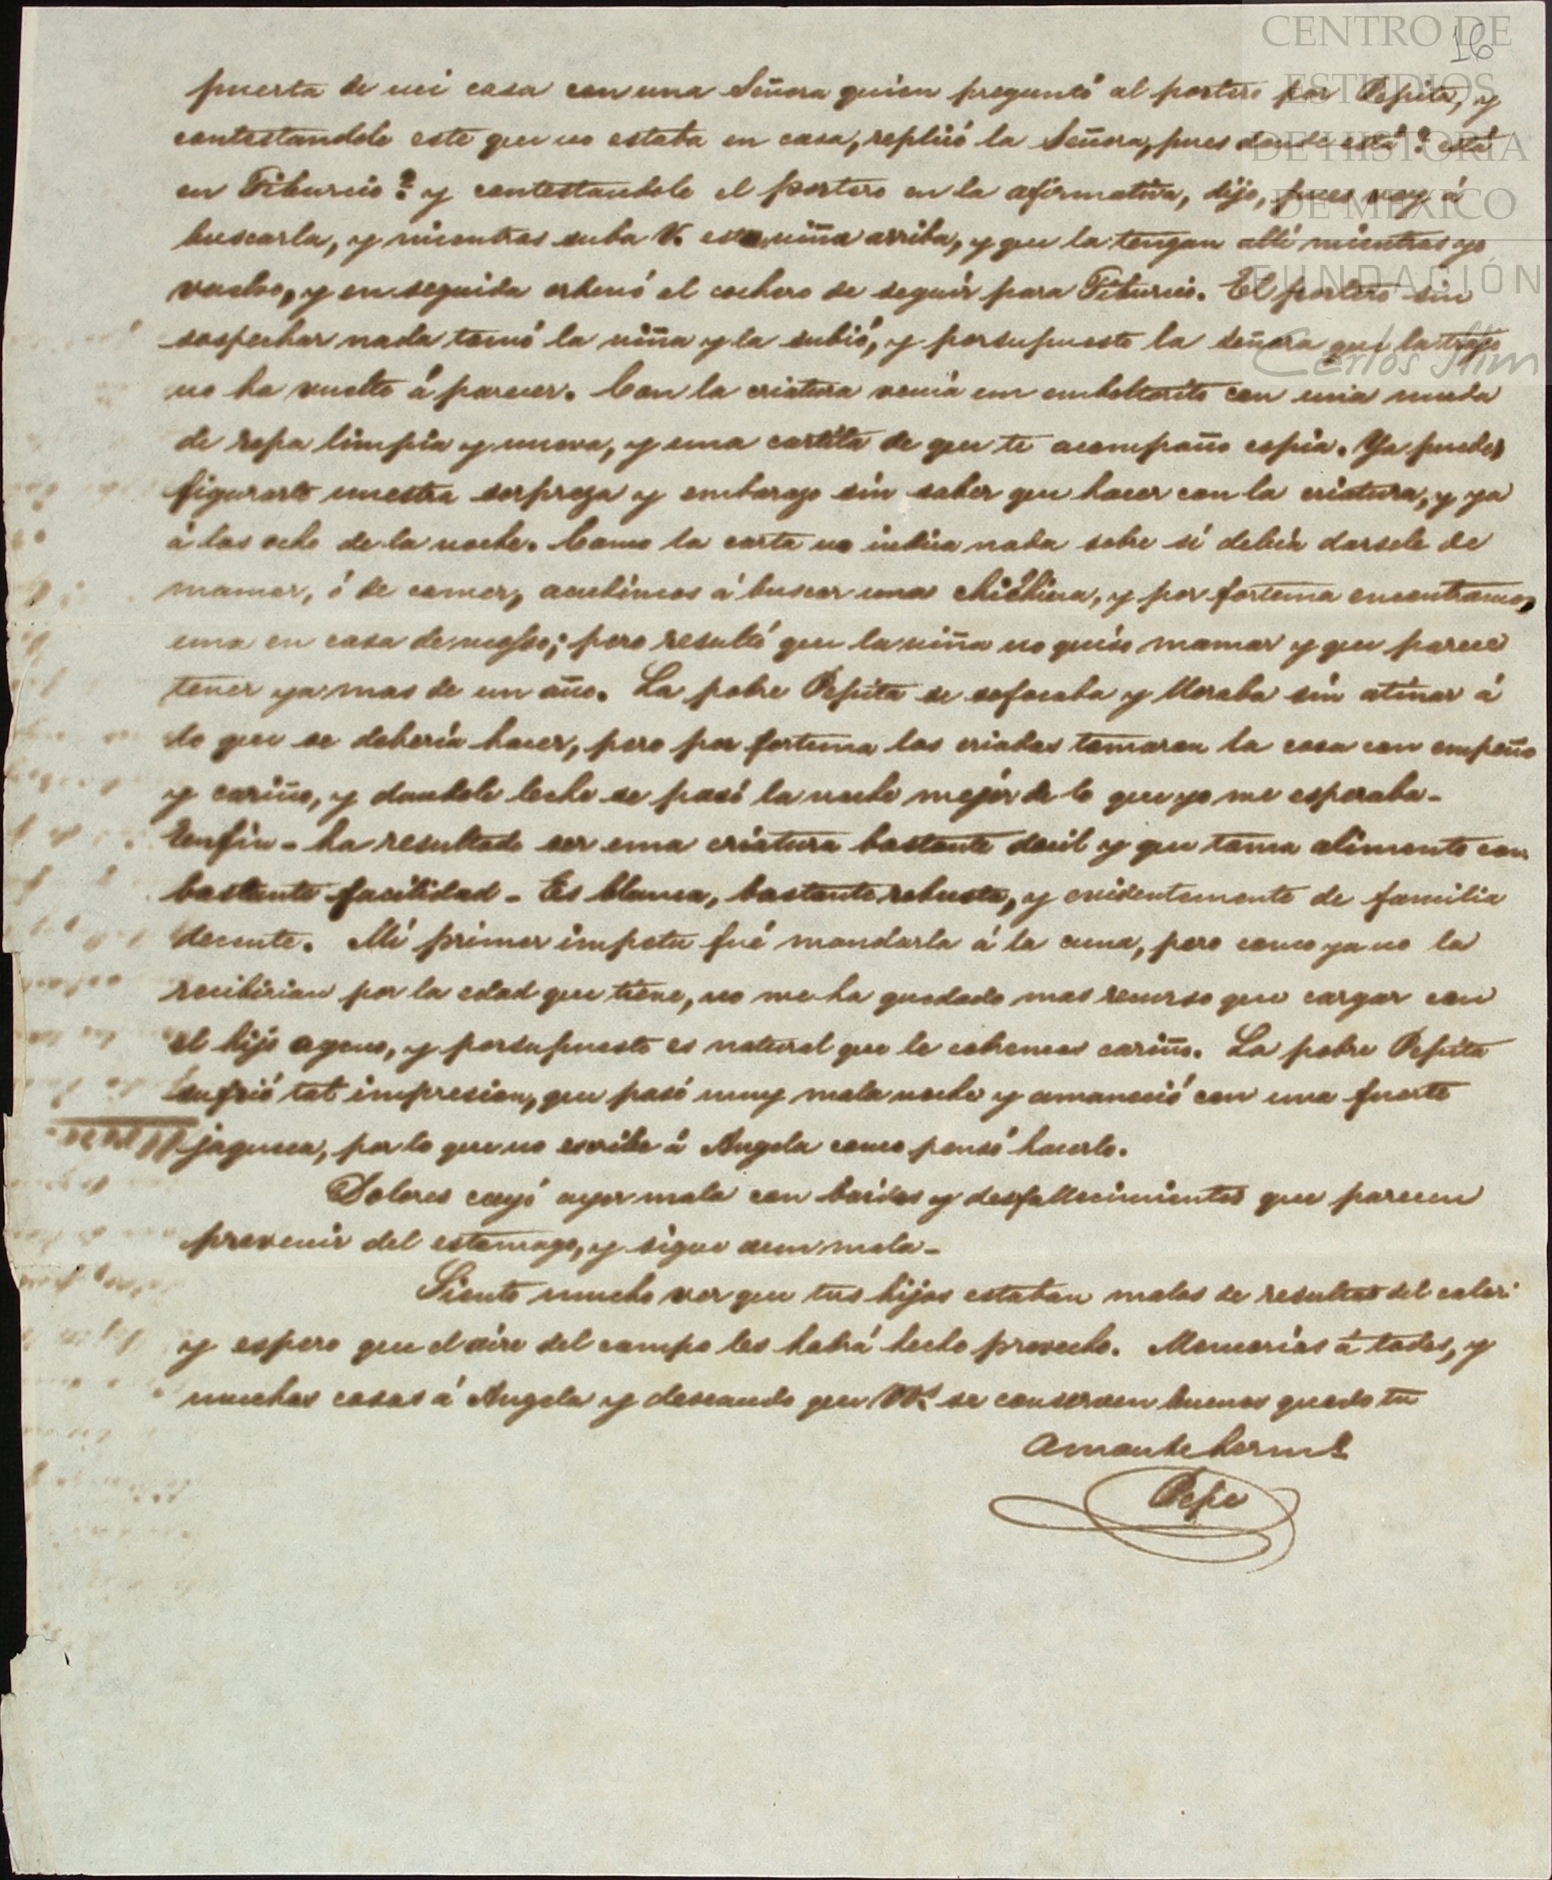 CENTRO DE
ESTUDIOS
DE HISTORIA
DE MEXICO
FUNDACIÓN
Carlos Slim
16
puerta de mi casa con una Señora quien preguntó al portero por Pepita, y
contestandole este que no estaba en casa, replicó la Señora, pues donde está? está
en Tiburcio? y contestandole el portero en la afirmativa, dijo, pues voy á
buscarla, y mientras suba V. esa niña arriba, y que la tengan allí mientras yo
vuelvo, y en seguida ordenó al cochero de seguir para Tiburcio. El portero sin
sospechar nada tomó la niña y la subió, y porsupuesto la señora que la trajo
no ha vuelto á parecer. Con la criatura venia un emboltorito con una muda
de ropa limpia y nueva, y una cartita de que te acompaño copia. Ya puedes
figurarte nuestra sorpresa y embarazo sin saber que hacer con la criatura, y ya
á las ocho de la noche. Como la carta no indica nada sobre si debia darsele de
mamar, ó de comer, acudimos á buscar una chichiua, y por fortuna encontramos
una en casa de ; pero resultó que la niña no quiso mamar y que parece
tener ya mas de un año. La pobre Pepita se sofocaba y lloraba sin atinar á
lo que se debería hacer, pero por fortuna las criadas tomaron la cosa con empeño
y cariño, y dandole leche se pasó la noche mejor de lo que yo me esperaba-
Enfin- ha resultado ser una criatura bastante docil y que toma alimento con
bastante facilidad- Es blanca, bastante robusta, y evidentemente de familia
decente. Mi primer impetu fué mandarla á la cuna, pero como ya no la
recibirian por la edad que tiene, no me ha quedado mas recurso que cargar con
el hijo ageno, y porsupuesto es natural que le cobremos cariño. La pobre Pepita
sufrió tal impresion, que pasó muy mala noche y amaneció con una fuerte
jaqueca, por lo que no escribe á Angela como pensó hacerlo.
Dolores cayó ayer mala con baidos y desfallecimientos que parecen
provenir del estomago, y sigue aun mala-
Siento mucho ver que tus hijos estaban malos de resultas del calor
y espero que el aire del campo les habrá hecho provecho. Memorias á todos, y
muchas cosas á Angela y deseando que VVs se conserven buenos quedo tu
amante hermo
Pepe